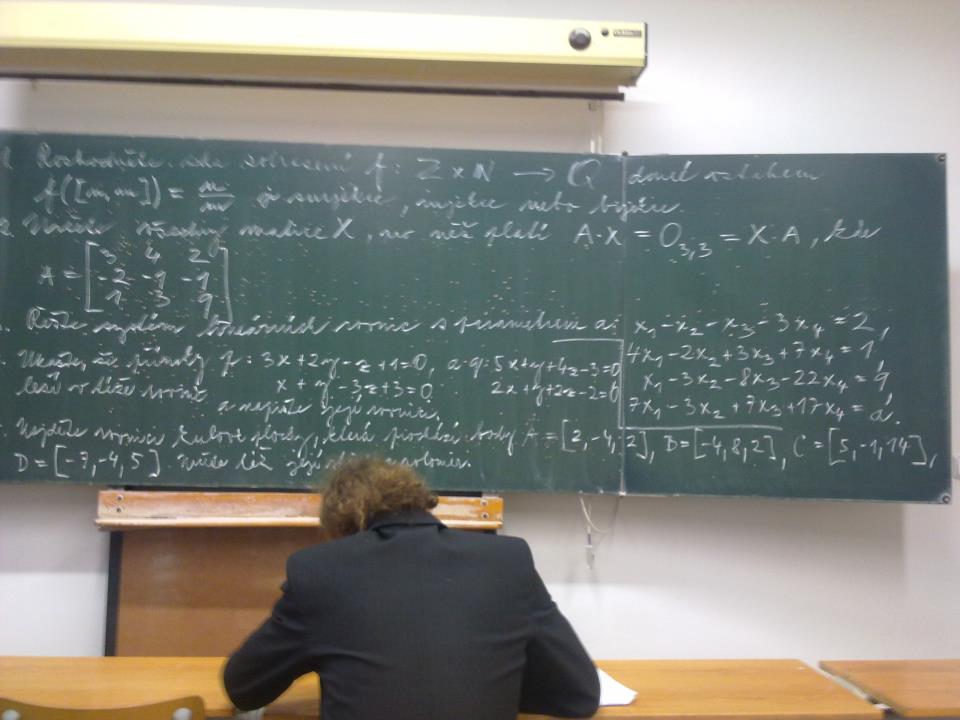 Rozhodněte, zda zobrazení f: Z × N → Q dané vztahem
f([m,n]) = m/n je surjekce, injekce nebo bijekce.
2. Určete všechny matice X, pro něž platí A·X = O₃,₃ = X·A, kde
A = [3 4 2
-2 -1 -1
1 3 9]
Řešte systém lineárních rovnic s parametrem a:
x₁ - x₂ - x₃ - 3x₄ = 2,
4x₁ - 2x₂ + 3x₃ + 7x₄ = 1,
x₁ - 3x₂ - 8x₃ - 22x₄ = 9,
7x₁ - 3x₂ + 7x₃ + 17x₄ = a.
Ukažte, že přímky p: 3x+2y-z+1=0, a q: 5x+y+4z-3=0
leží v téže rovině x+y-3z+3=0 2x+y+2z-2=0
a najděte její rovnici.
Najděte rovnici kulové plochy, která prochází body A = [2,-4,2], B = [-4,8,2], C = [5,-1,14],
D = [-7,-4,5]. Určete též její střed a poloměr.